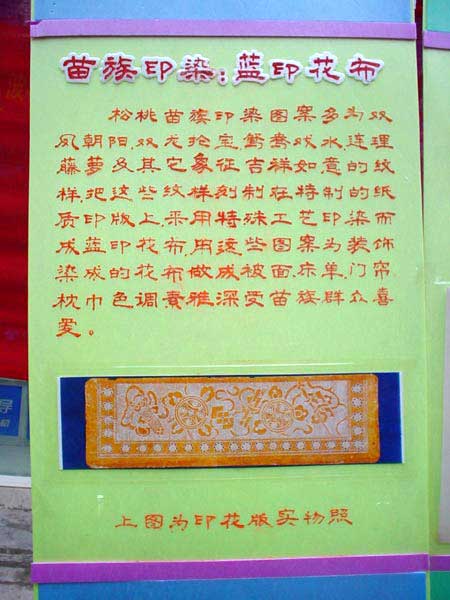 苗族印染:蓝印花布
松桃苗族印染图案多为双
凤朝阳,双龙抢宝,鸳鸯戏水,连理
藤萝及其它象征吉祥如意的纹
样,把这些纹样刻制在特制的纸
质印版上,采用特殊工艺印染而
成蓝印花布,用这些图案为装饰
染成的花布做成被面,床单,门帘,
枕巾色调素雅,深受苗族群众喜
爱。
上图为印花版实物照
导